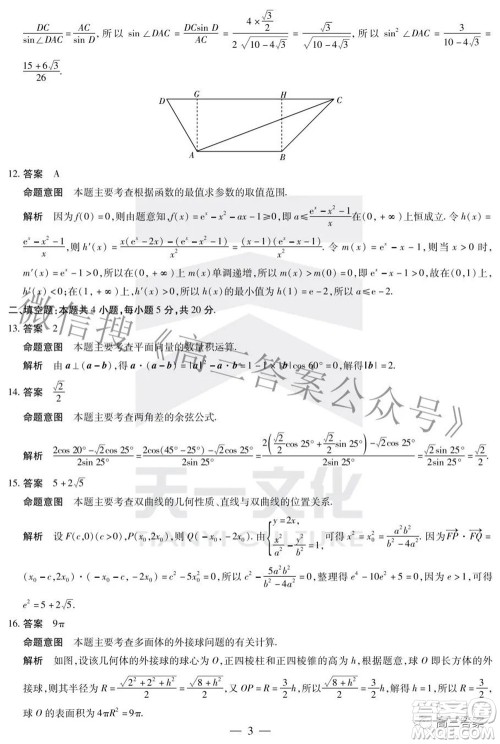 DC/sin∠DAC = AC/sin D，所以 sin ∠DAC = DCsin D/AC = (4×√3/2)/(2√(10-4√3)) = √3/√(10-4√3)，所以 sin² ∠DAC = 3/(10-4√3) =
(15+6√3)/26.
D G H C
A B
12. 答案 A
命题意图 本题主要考查根据函数的最值求参数的取值范围.
解析 因为 f(0)=0,则由题意知,f(x)=eˣ-x²-ax-1≥0,即 a≤(eˣ-x²-1)/x 在(0,+∞)上恒成立. 令 h(x)=
(eˣ-x²-1)/x,则 h'(x)=(x(eˣ-2x)-(eˣ-x²-1))/x²=((x-1)(eˣ-x-1))/x². 令 m(x)=eˣ-x-1,则当 x>0 时,
m'(x)=eˣ-1>0,所以在(0,+∞)上 m(x)单调递增,所以 m(x)>m(0)=0,即 eˣ-x-1>0,所以在(0,1)上,
h'(x)<0;在(1,+∞)上,h'(x)>0,所以 h(x)的最小值为 h(1)=e-2,所以 a≤e-2.
二、填空题:本题共 4 小题,每小题 5 分,共 20 分.
13. 答案 2
命题意图 本题主要考查平面向量的数量积运算.
解析 由 a⊥(a-b),得 a·(a-b)=|a|²-a·b=1-1×|b|cos 60°=0,解得|b|=2.
14. 答案 √2/2
命题意图 本题主要考查两角差的余弦公式.
解析 (2cos 20°-√2cos 25°)/(2sin 25°)=(2cos(45°-25°)-√2cos 25°)/(2sin 25°)=(2(√2/2 cos 25°+√2/2 sin 25°)-√2cos 25°)/(2sin 25°)=√2/2.
15. 答案 5+2√5
命题意图 本题主要考查双曲线的几何性质、直线与双曲线的位置关系.
解析 设 F(c,0)(c>0),P(x₀,2x₀),则 Q(-x₀,-2x₀). 由{y=2x, x²/a²-y²/b²=1, 可得 x²=x₀²=a²b²/(b²-4a²). 因为FP·FQ=
(x₀-c,2x₀)·(-x₀-c,-2x₀)=c²-5x₀²=0,所以 c²-5a²b²/(b²-4a²)=0,整理得 e⁴-10e²+5=0,因为 e>1,可得
e²=5+2√5.
16. 答案 9π
命题意图 本题主要考查多面体的外接球问题的有关计算.
解析 如图,设该几何体的外接球的球心为 O,正四棱柱和正四棱锥的高为 h,根据题意,球 O 即长方体的外
接球,则其半径为 R=√(2²+2²+h²)/2=√(8+h²)/2,又 OP=R=3/2 h,所以√(8+h²)/2=3/2 h,解得 h=1,所以 R=3/2,所以
球 O 的表面积为 4πR²=9π.
— 3 —
微信搜《高三答案公众号》
天一文化
TIANYI CULTURE
高三答案